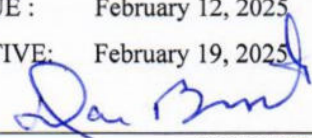 UE : February 12, 2025
TIVE: February 19, 2025